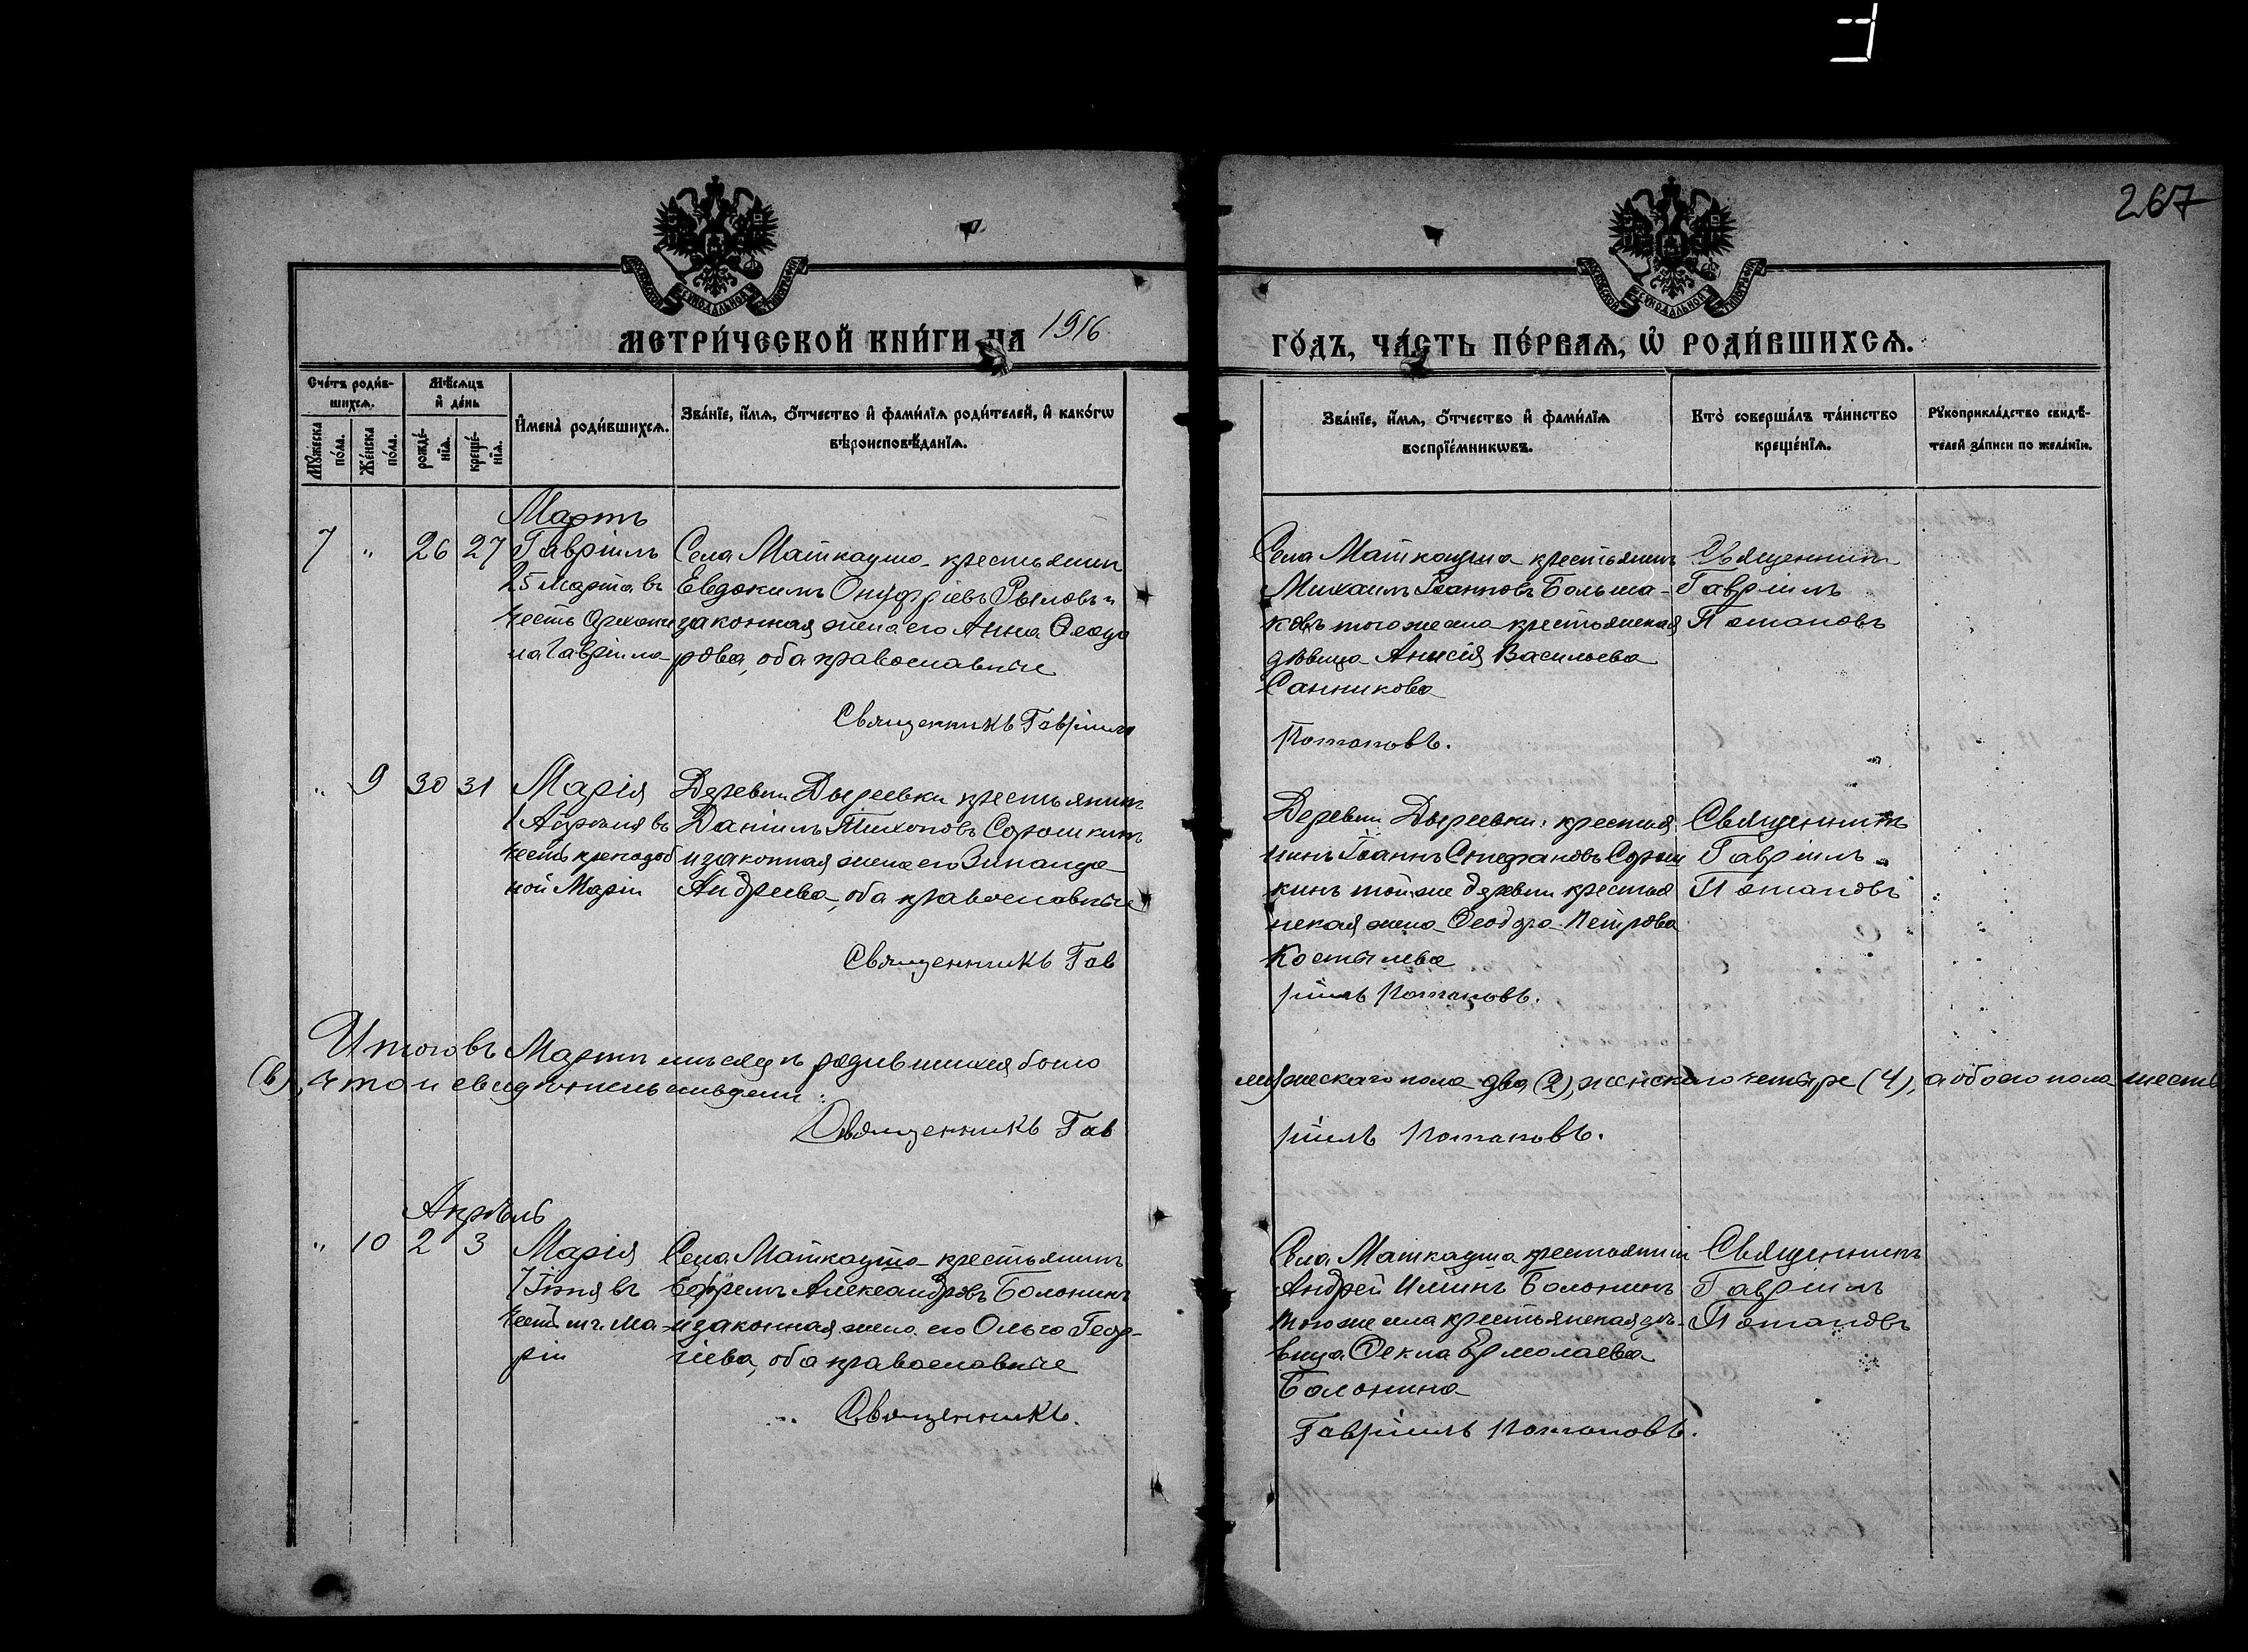 267
МЕТРИ́ЧЕСКОЙ КНИ́ГИ НА 1916
ГО́ДЪ, ЧА́СТЬ ПЕ́РВАЯ, Ѡ҆ РОДИ́ВШИХСЯ.
Сче́тъ роди́в-
шихся.
Мѣ́сяцъ
и҆ де́нь
И҆мена̀ роди́вшихся.
Зва́нїе, и҆́мя, о҆́тчество и҆ фами́лїя роди́телей, и҆ како́гѡ
вѣроисповѣ́данїя.
Мꙋ́жеска
по́ла.
Же́нска
по́ла.
рожде́-
нїя.
креще́-
нїя.
Зва́нїе, и҆́мя, о҆́тчество и҆ фами́лїя
воспрїе́мникѡвъ.
Кто̀ соверша́лъ та́инство
креще́нїя.
Рꙋкоприкла́дство свидѣ́-
телей за́писи по жела́нїю.
Мартъ
7 " 26 27 Гавріилъ
25 Марта въ
честь Архан
ла Гавріила
Села Маткауша крестьянин
Евдокимъ Онуфріевъ Рыловъ и
законная жена его Анна Ѳеодо
рова, оба православные
Священникъ Гавріилъ
Села Маткауша крестьянин
Михаилъ Іоанновъ Больша-
ковъ того же села крестьянская
дѣвица Анисія Васильева
Санникова
Потаповъ.
Священникъ
Гавріилъ
Потаповъ
" 9 30 31 Марія
1 Апрѣля въ
честь преподоб
ной Маріи
Деревни Дыреевки крестьянинъ
Даніилъ Тихоновъ Сорошкинъ
и законная жена его Зинаида
Андреева, оба православные
Священникъ Гав
Деревни Дыреевки крестья
нинъ Іоаннъ Стефановъ Сорош
кинъ той же деревни крестья
нская жена Ѳеодора Петрова
Костылева
ріилъ Потаповъ.
Священникъ
Гавріилъ
Потаповъ
Итого въ Мартѣ мѣсяцѣ родившихся было
мужескаго пола два (2), женскаго четыре (4), а обоего пола шесть
(6), что и свидѣтельствуемъ:
Священникъ Гав
ріилъ Потаповъ.
Апрѣль
" 10 2 3 Марія
7 Іюня въ
честь мч. Ма-
ріи
Села Маткауша крестьянинъ
Ефремъ Александровъ Болонинъ
и законная жена его Ольга Геор-
гіева, оба православные
Священникъ.
Села Маткауша крестьянин
Андрей Ильинъ Болонинъ
того же села крестьянская дѣ-
вица Ѳекла Ермолаева
Болонина
Гавріилъ Потаповъ.
Священникъ
Гавріилъ
Потаповъ